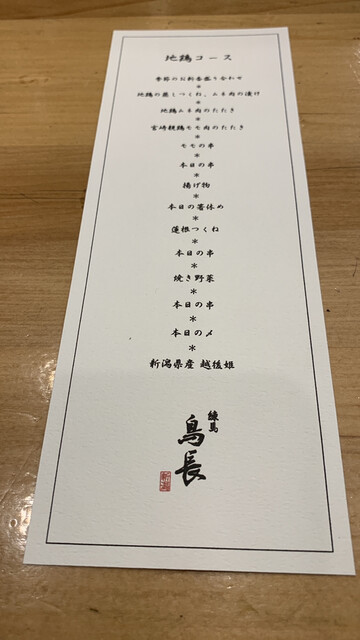 地鶏コース
季節のお料理盛り合わせ
*
地鶏の蒸しつくね、ムネ肉の漬け
*
地鶏ムネ肉のたたき
*
宮崎親鶏モモ肉のたたき
*
モモの串
*
本日の串
*
揚げ物
*
本日の箸休め
*
蓮根つくね
*
本日の串
*
焼き野菜
*
本日の串
*
本日の〆
*
新潟県産 越後姫
練馬
鳥長